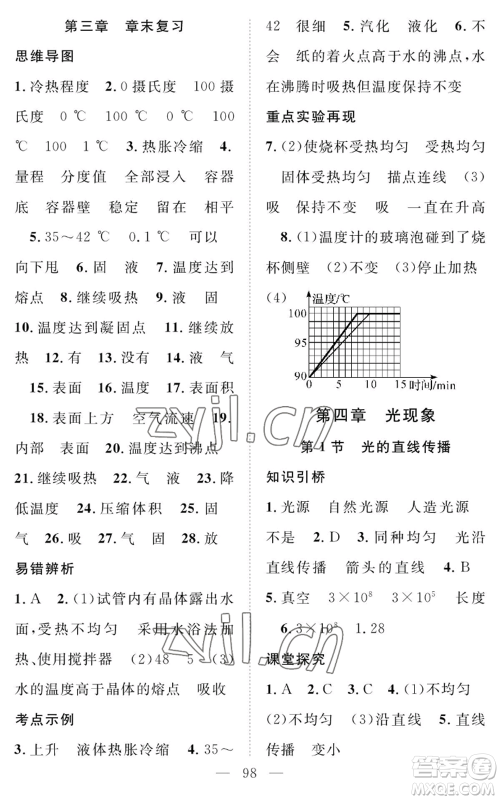 第三章　章末复习
思维导图
1.冷热程度　2.0 摄氏度　100 摄
氏度　0　℃　0 ℃　100 ℃　0
100　100　1 ℃　3.热胀冷缩　4.
量程　分度值　全部浸入　容器
底　容器壁　稳定　留在　相平
5.35～42 ℃　0.1 ℃　可以
向下甩　6.固　液　7.温度达到
熔点　8.继续吸热　9.液　固
10.温度达到凝固点　11.继续放
热　12.有　13.无　14.液　气
15.表面　16.温度　17.表面积
18.表面上方　空气流速　19.
内部　表面　20.温度达到沸点
21.继续吸热　22.气　液　23.降
低温度　24.压缩体积　25.固
气　26.吸　27.气　固　28.放
易错辨析
1.A　2.(1)试管内有晶体露出水
面，受热不均匀　采用水浴法加
热、使用搅拌器　(2)48　5　(3)
水的温度高于晶体的熔点　吸收
考点示例
3.上升　液体热胀冷缩　4.35～
42　很细　5.汽化　液化　6.不
会　纸的着火点高于水的沸点，
水在沸腾时吸热但温度保持不变
重点实验再现
7.(2)使烧杯受热均匀　受热均匀
固体受热均匀　描点连线　(3)
吸　保持不变　不　一直在升高
8.(1)温度计的玻璃泡碰到了烧
杯侧壁　(2)不变　(3)停止加热
(4)
温度/℃
100
95
90
0　5　10　15　时间/min
第四章　光现象
第 1 节　光的直线传播
知识引桥
1.光源　自然光源　人造光源
不是　2.B　3.同种均匀　沿
直线传播　4.光沿直线传播
5.真空　3×10⁸　3×10⁵　长度
6.3×10⁵　1.28
课堂探究
1.A　2.(1)不均匀　不均匀
(2)不均匀　(3)沿直线　直线
传播　变小
98
zyjl.cn
zyjl.cn